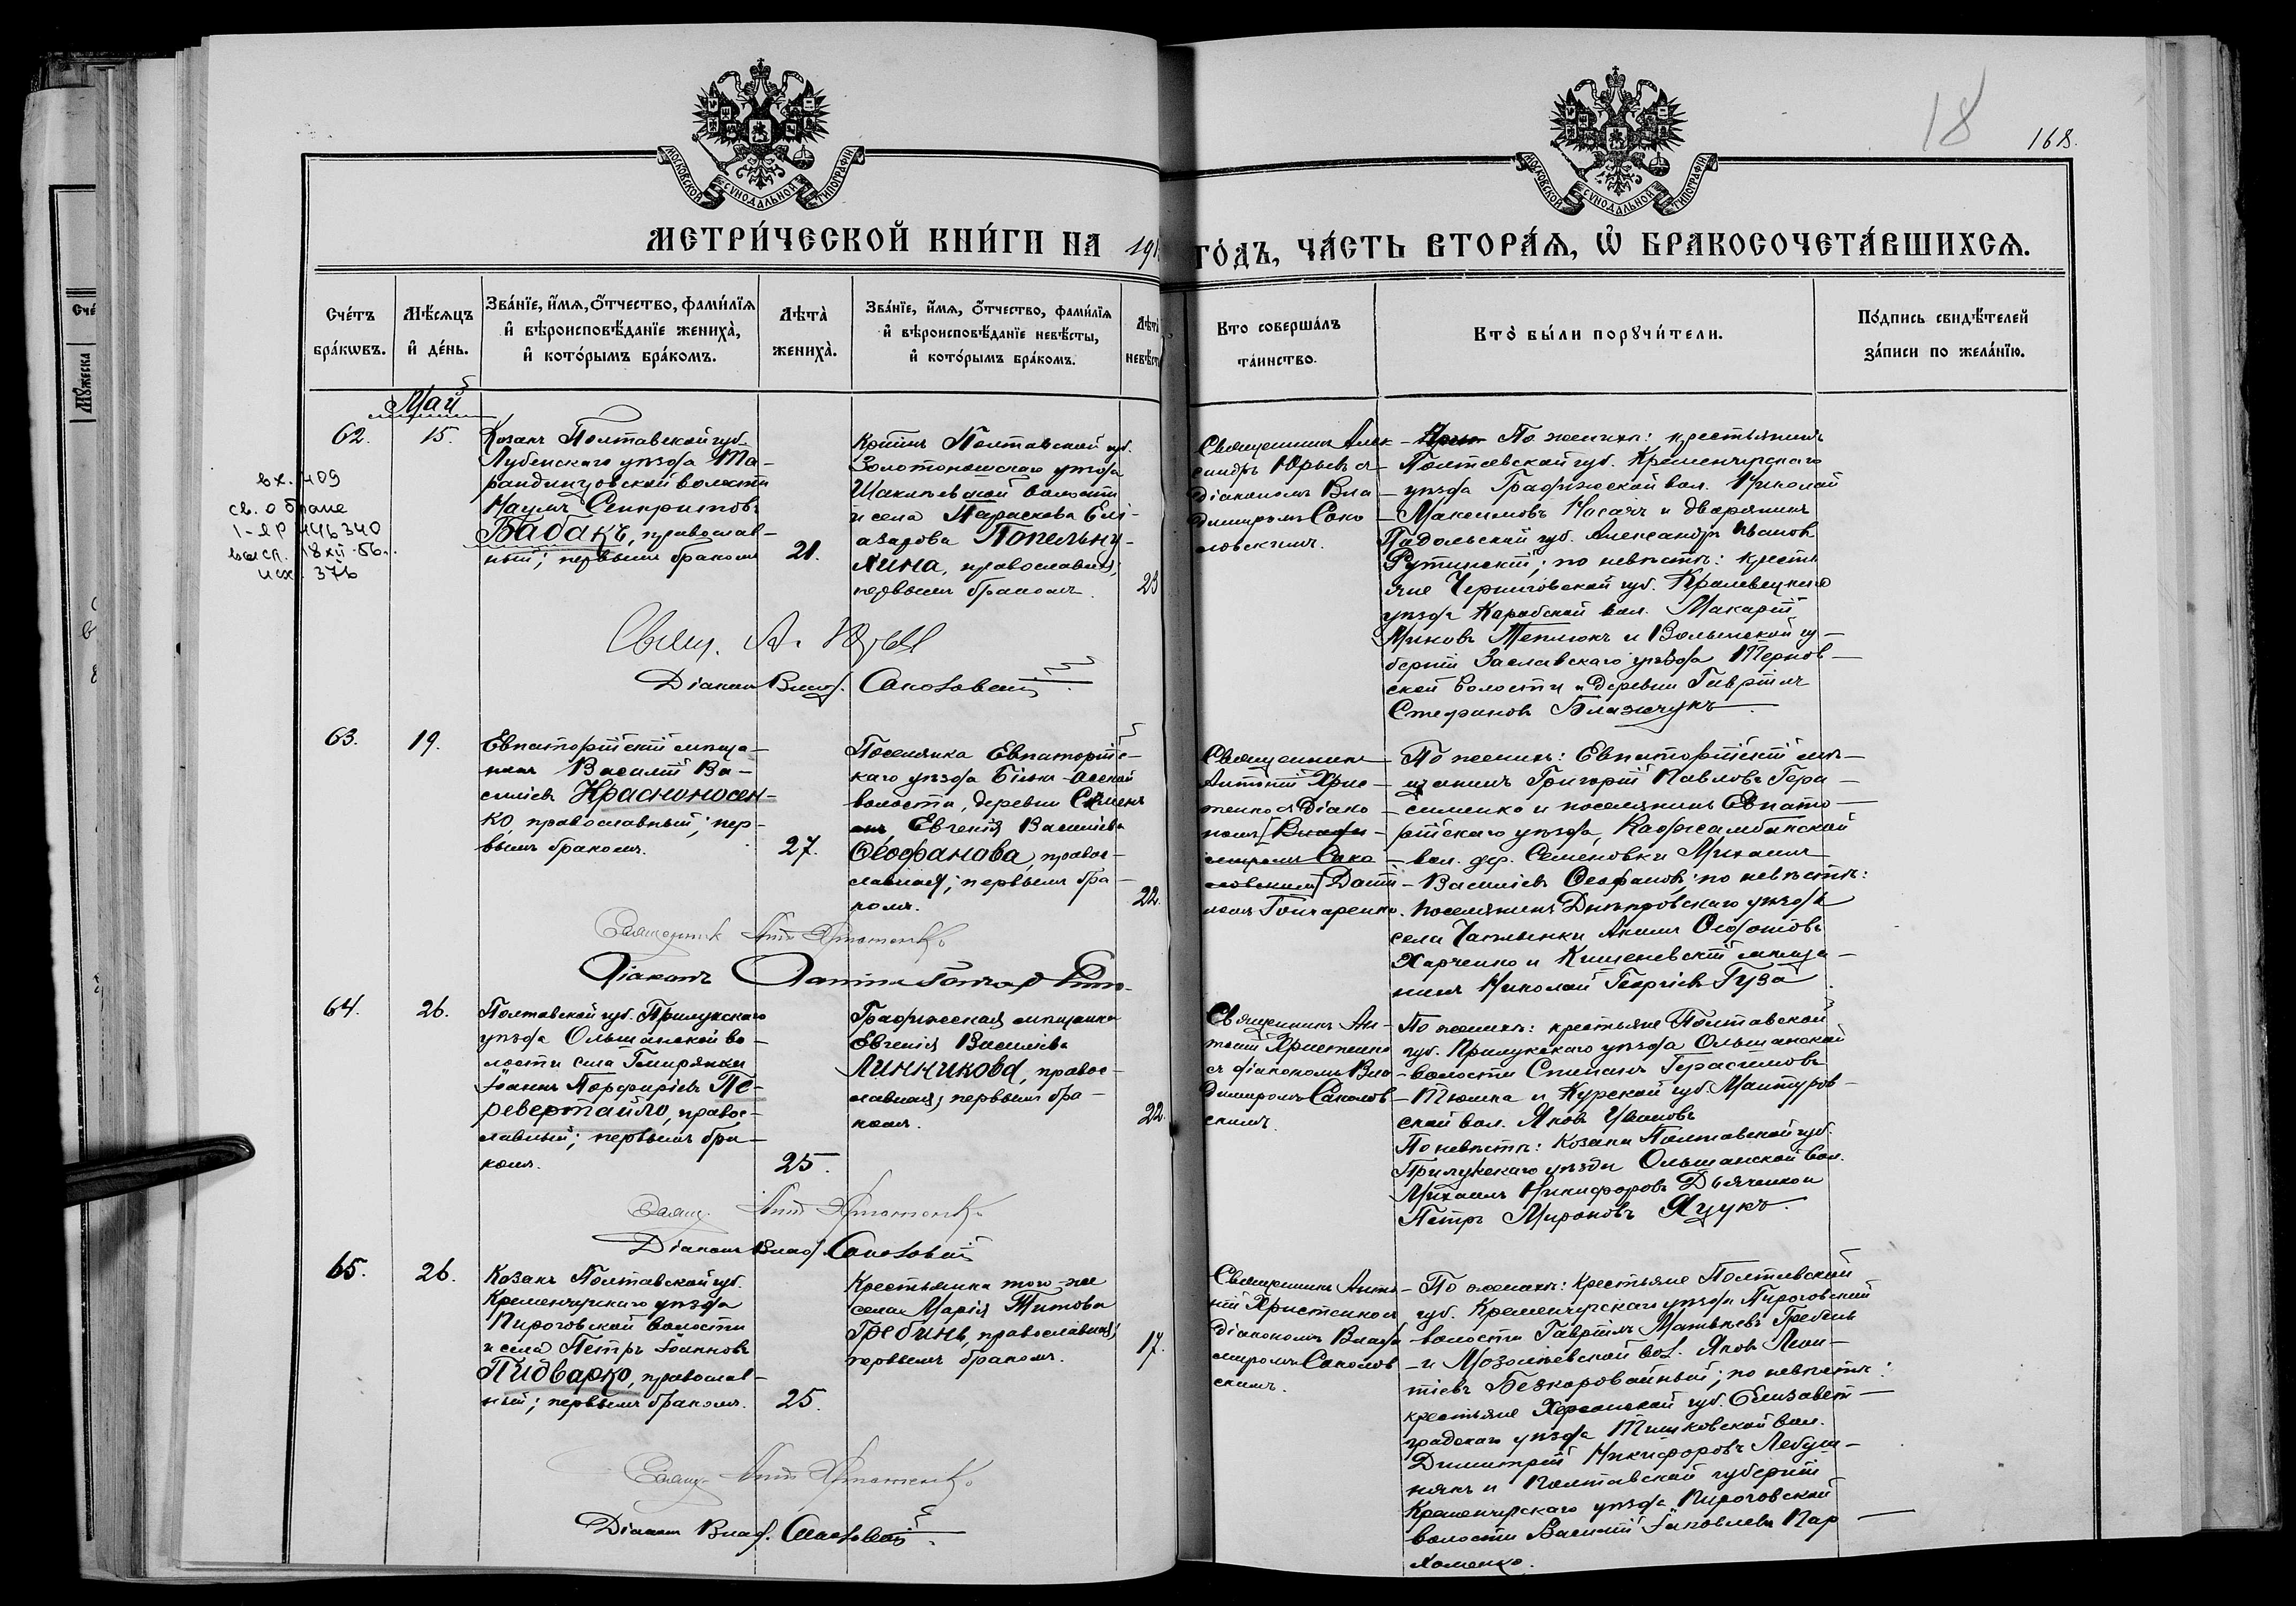 18
168.
МОСКОВСКОЙ СѴНОДАЛЬНОЙ ТИПОГРАФІИ
МОСКОВСКОЙ СѴНОДАЛЬНОЙ ТИПОГРАФІИ
МЕТРИ́ЧЕСКОЙ КНИ́ГИ НА 191
ГО́ДЪ, ЧА́СТЬ ВТОРА́Ѧ, Ѽ БРАКОСОЧЕТА́ВШИХСѦ.
Сче́тъ
бра́кѡвъ.
Мѣ́сяцъ
и҆ де́нь.
Зва́нїе, и҆́мѧ, ѻ҆́тчество, фами́лїѧ
и҆ вѣроисповѣ́данїе жениха̀,
и҆ кото́рымъ бра́комъ.
Лѣта̀
жениха̀.
Зва́нїе, и҆́мѧ, ѻ҆́тчество, фами́лїѧ
и҆ вѣроисповѣ́данїе невѣ́сты,
и҆ кото́рымъ бра́комъ.
Лѣта̀
невѣ́сты
Кто соверша́лъ
та́инство.
Кто̀ бы́ли порꙋчи́тели.
По́дпись свидѣ́телей
за́писи по жела́нїю.
Май
62.
15.
вх. 409
св. о браке
446340
18 XII 56.
исх. 376
Козакъ Полтавской губ.
Лубенскаго уѣзда Та-
рандинцовской волости
Наумъ
Бабакъ, православ-
ный; первымъ бракомъ
21.
Полтавской губ.
Золотоношскаго уѣзда
волости
и села Параскева Елі-
азарова Попельну-
хина, православная,
первымъ бракомъ.
23
Священникъ Алек-
сандръ Юрьевъ съ
діакономъ Вла-
димиромъ Соко-
ловскимъ.
По женихѣ: крестьянинъ
Полтавской губ. Кременчугскаго
уѣзда Градижской вол. Николай
Максимовъ Носачъ и дворянинъ
Подольской губ. Александръ Ивановъ
Рутинскій; по невѣстѣ: крестья
яне Черниговской губ. Кролевецкаго
уѣзда Коробской вол. Макарій
Теплюкъ и Волынской гу-
берніи Заславскаго уѣзда Тернов-
ской волости и деревни Гавріилъ
Стефановъ Блажчукъ.
Свящ. А. Юрьев
Діаконъ Влад. Соколовскій
63.
19.
Евпаторійскій мѣща-
нинъ Василій Ва-
сильевъ Красноносен-
ко, православный; пер-
вымъ бракомъ.
27.
Поселянка Евпаторійс-
каго уѣзда
волости, деревни
Евгенія Васильева
Ѳеофанова, правос-
лавная; первымъ бра-
комъ.
22.
Священникъ
Антоній Хрис-
тенко съ діако-
номъ [Влади-
миромъ Соко-
ловскимъ] Дані-
иломъ Гончаренко.
По женихѣ: Евпаторійскій мѣ-
щанинъ Григорій Павловъ Гера-
сименко и поселянинъ Евпато-
рійскаго уѣзда,
вол. дер. Семеновки Михаилъ
Васильевъ Ѳеофановъ; по невѣстѣ:
поселянинъ Днѣпровскаго уѣзда
села Чаплынки Акимъ
Харченко и Кишеневскій мѣща-
нинъ Николай Георгіевъ Гуза.
Священник Ант. Христенко
Діаконъ Даніилъ Гончаренко
64.
26.
Полтавской губ. Прилукскаго
уѣзда Ольшанской во-
лости села Гмырянки
Іоаннъ Порфиріевъ Пе-
ревертайло, правос-
лавный; первымъ бра-
комъ.
25.
Градижская мѣщанка
Евгенія Васильева
Линникова, правос-
лавная, первымъ бра-
комъ.
22.
Священникъ Ан-
тоній Христенко
съ діакономъ Вла-
димиромъ Соколов-
скимъ.
По женихѣ: крестьяне Полтавской
губ. Прилукскаго уѣзда Ольшанской
волости Герасимовъ
и Курской губ. Мантуров-
ской вол. Яковъ
По невѣстѣ: козаки Полтавской губ.
Прилукскаго уѣзда Ольшанской вол.
Михаилъ Никифоровъ Дьяченко и
Петръ Мироновъ Яцукъ.
Свящ. Ант. Христенко
Діаконъ Влад. Соколовскій
65.
26.
Козакъ Полтавской губ.
Кременчугскаго уѣзда
Пироговской волости
и села Петръ Іоанновъ
Пидварко, православ-
ный; первымъ бракомъ.
25.
Крестьянка того-же
села Марія Титова
Гребинь, православная,
первымъ бракомъ.
17.
Священникъ Анто-
ній Христенко съ
діакономъ Влади-
миромъ Соколов-
скимъ.
По женихѣ: Крестьяне Полтавской
губ. Кременчугскаго уѣзда Пироговской
волости Гавріилъ Матвѣевъ Гребень
и Мозолѣевской вол. Яковъ Леон-
тіевъ Безкоровайный; по невѣстѣ:
крестьяне Херсонской губ. Елизавет-
градскаго уѣзда Тишковской вол.
Димитрій Никифоровъ Лебуш-
някъ и Полтавской губерніи
Кременчугскаго уѣзда Пироговской
волости Василій Іаковлевъ Пар-
хоменко.
Свящ. Ант. Христенко
Діаконъ Влад. Соколовскій.